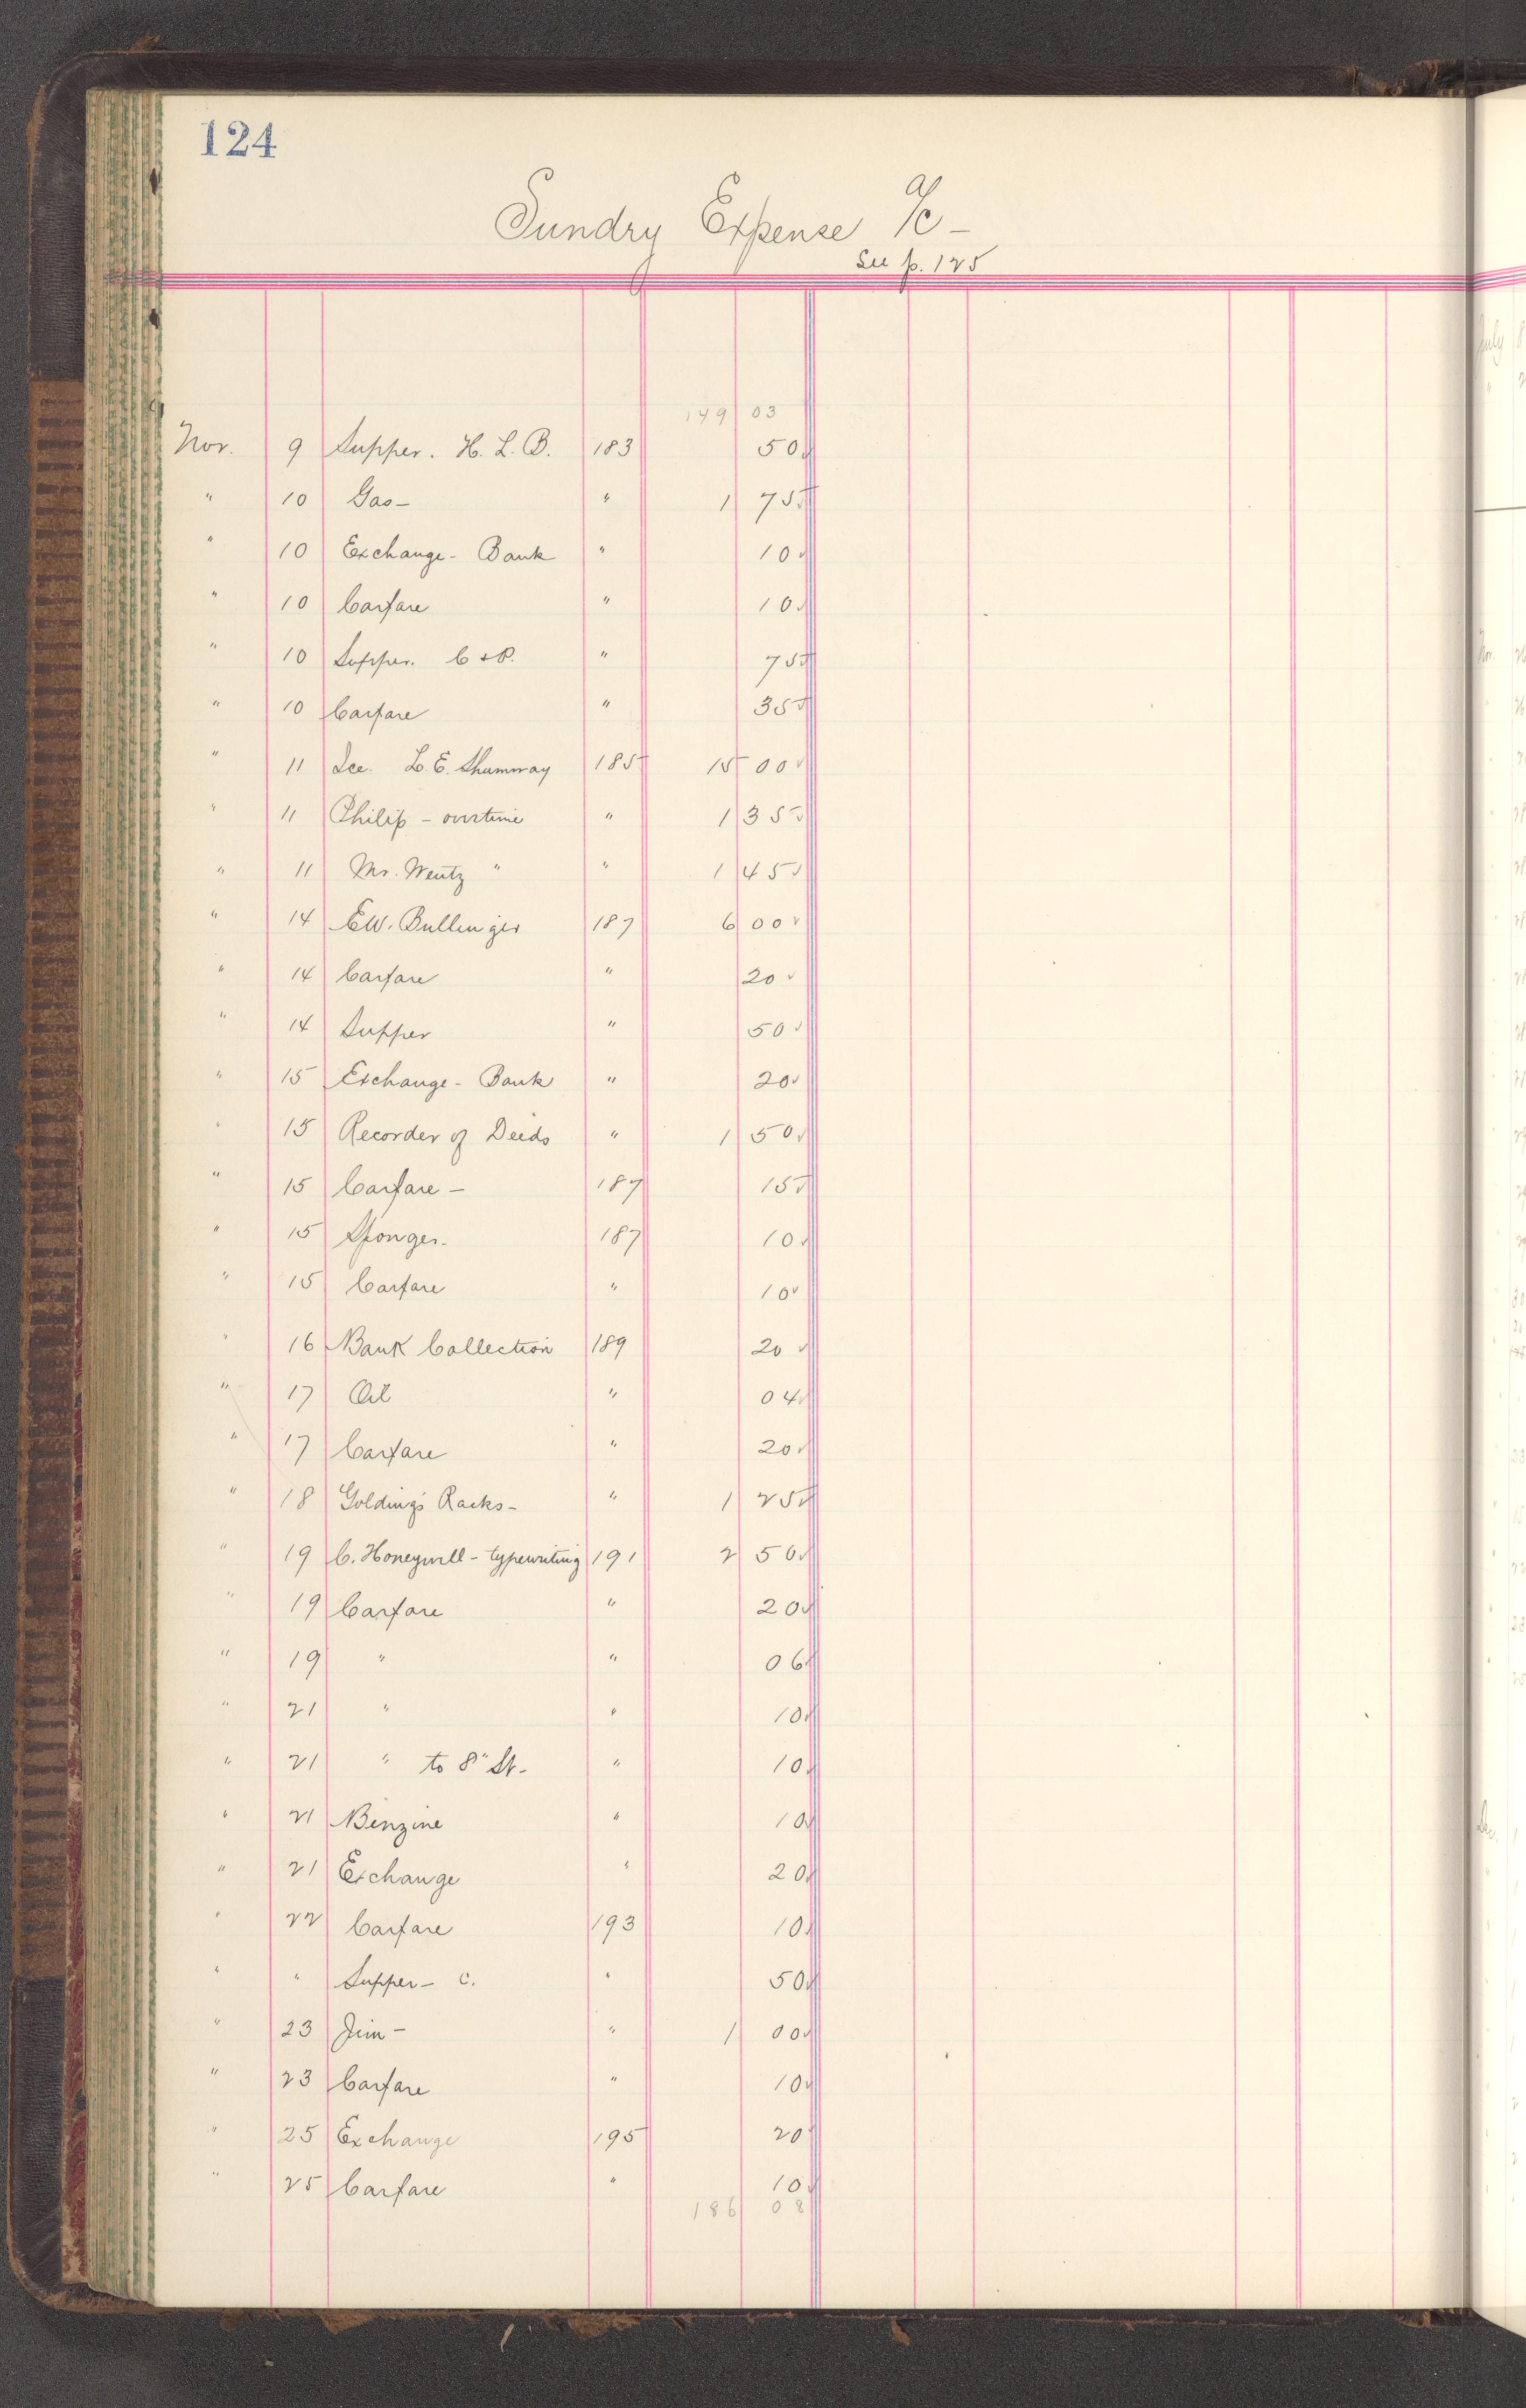 124
Sundry Expense a/c -
See p. 125
149 03
Nov. 9 Supper. H. L. B. 183 50 ✓
" 10 Gas - " 1 75 ✓
" 10 Exchange - Bank " 10 ✓
" 10 Carfare " 10 ✓
" 10 Supper. C & P. " 75 ✓
" 10 Carfare " 35 ✓
" 11 Ice. L. E. Shumway 185 15 00 ✓
" 11 Philip - overtime " 1 35 ✓
" 11 Mr. Wentz " " 1 45 ✓
" 14 E.W. Bullinger 187 6 00 ✓
" 14 Carfare " 20 ✓
" 14 Supper " 50 ✓
" 15 Exchange - Bank " 20 ✓
" 15 Recorder of Deeds " 1 50 ✓
" 15 Carfare - 187 15 ✓
" 15 Sponges. 187 10 ✓
" 15 Carfare " 10 ✓
" 16 Bank Collection 189 20 ✓
" 17 Oil " 04 ✓
" 17 Carfare " 20 ✓
" 18 Golding's Racks - " 1 25 ✓
" 19 C. Honeywell - typewriting 191 2 50 ✓
" 19 Carfare " 20 ✓
" 19 " " 06 ✓
" 21 " " 10 ✓
" 21 " to 8" St. " 10 ✓
" 21 Benzine " 10 ✓
" 21 Exchange " 20 ✓
" 22 Carfare 193 10 ✓
" " Supper - C. " 50 ✓
" 23 Jim - " 1 00 ✓
" 23 Carfare " 10 ✓
" 25 Exchange 195 20 ✓
" 25 Carfare " 10 ✓
186 08
July
Nov.